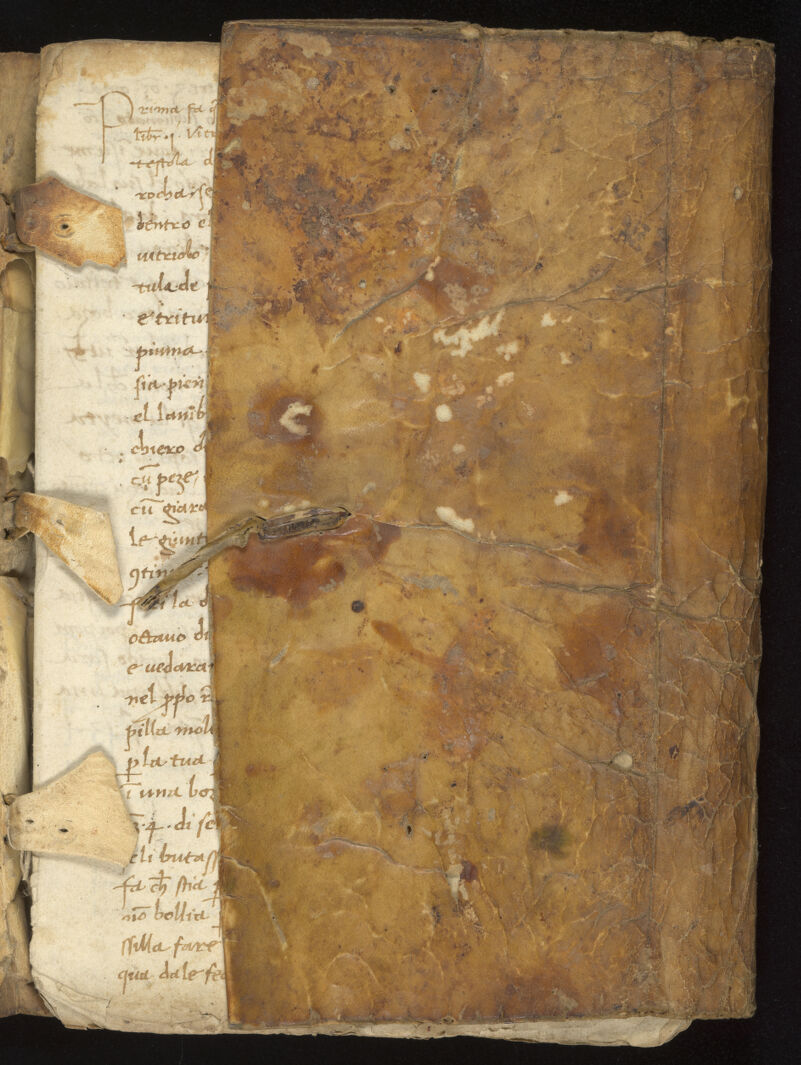 Prima fa q
libr. j. Vitr
testola d
rocha. se
dentro el
vitriolo
tula de
e tritur
piuma
sia pien
el lamb
chiero d
cũ peze
cũ giara
le giunt
9tin
la d
octavo di
e vedara
nel ꝓpo
pilla mol
ꝑla tua
ĩ una bo
ʒ. 4. di se
eli butass
fa ch̃ stia
nõ bollia
ssilla fare
qua dale fec